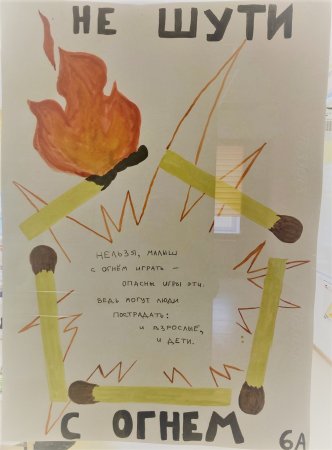 НЕ ШУТИ
НЕЛЬЗЯ, МАЛЫШ
С ОГНЁМ ИГРАТЬ –
ОПАСНЫ ИГРЫ ЭТИ.
ВЕДЬ МОГУТ ЛЮДИ
ПОСТРАДАТЬ:
И ВЗРОСЛЫЕ,
И ДЕТИ.
С ОГНЕМ
6А